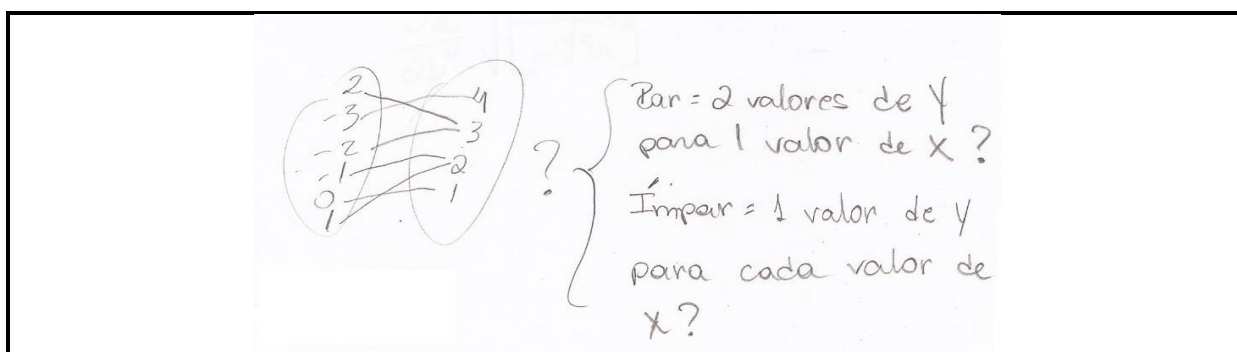 2
-3
-2
-1
0
1
4
3
2
1
?
Par = 2 valores de Y
para 1 valor de X ?
Ímpar = 1 valor de Y
para cada valor de
X ?